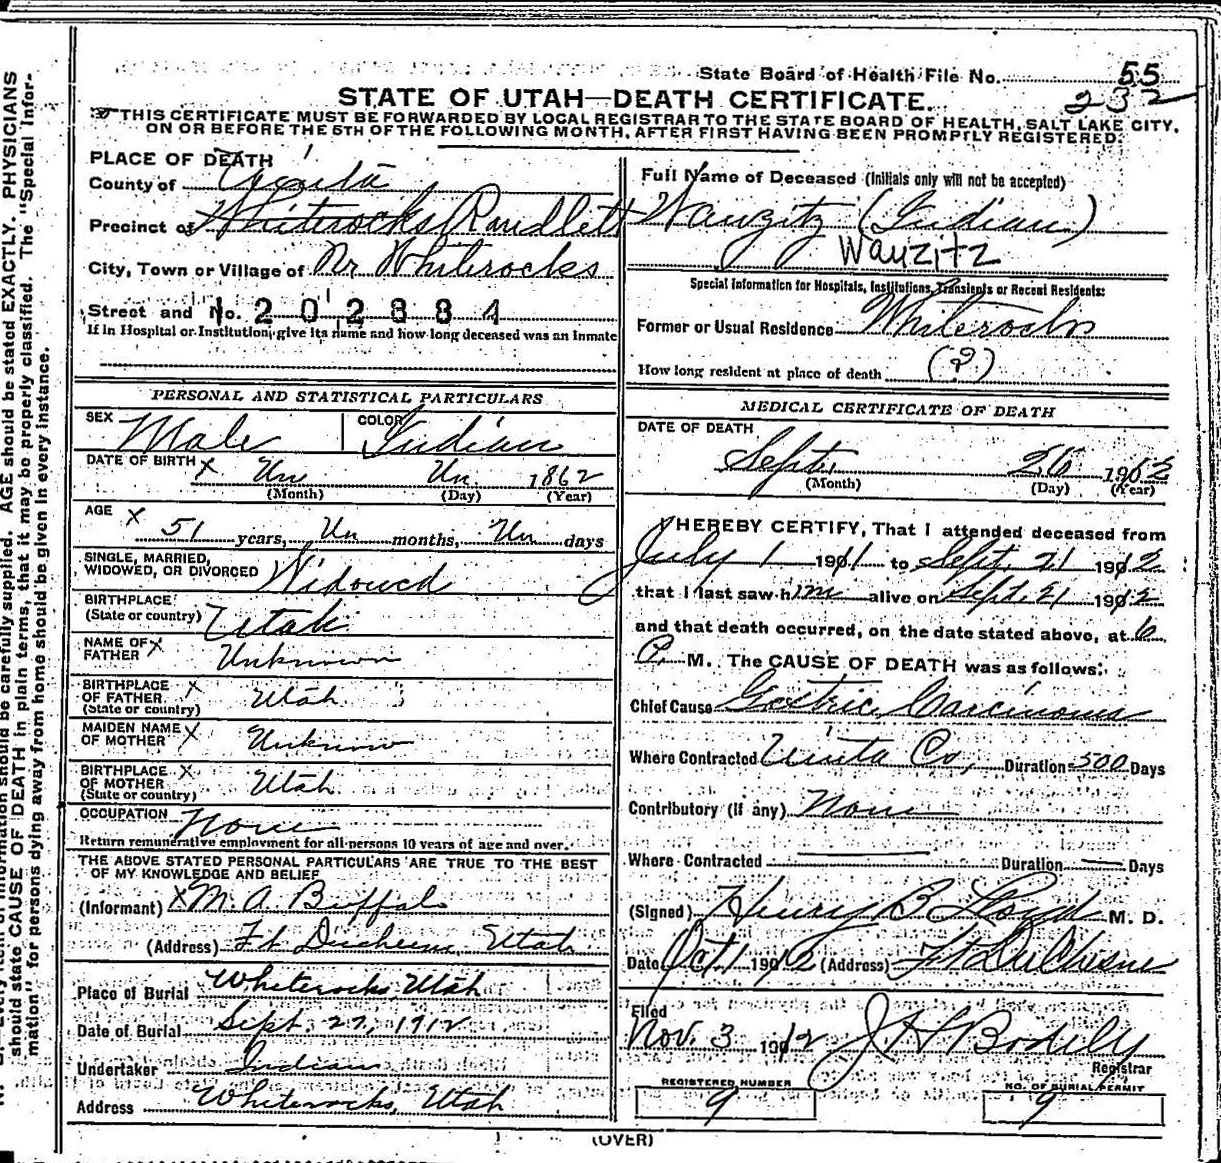 State Board of Health File No. 55
232
STATE OF UTAH—DEATH CERTIFICATE.
THIS CERTIFICATE MUST BE FORWARDED BY LOCAL REGISTRAR TO THE STATE BOARD OF HEALTH, SALT LAKE CITY,
ON OR BEFORE THE 5TH OF THE FOLLOWING MONTH, AFTER FIRST HAVING BEEN PROMPTLY REGISTERED.
PLACE OF DEATH
County of Uinta
Precinct of Whiterocks Randlett
City, Town or Village of Nr Whiterocks
Street and No. 1202884
If in Hospital or Institution, give its name and how long deceased was an inmate
PERSONAL AND STATISTICAL PARTICULARS
SEX Male COLOR Indian
DATE OF BIRTH x Un Un. 1862
(Month) (Day) (Year)
AGE x 51 years, Un months, Un days
SINGLE, MARRIED,
WIDOWED, OR DIVORCED Widowed
BIRTHPLACE
(State or country) Utah
NAME OF
FATHER x Unknown
BIRTHPLACE
OF FATHER x Utah
(State or country)
MAIDEN NAME
OF MOTHER x Unknow
BIRTHPLACE
OF MOTHER x Utah
(State or country)
OCCUPATION None
Return remunerative employment for all persons 10 years of age and over.
THE ABOVE STATED PERSONAL PARTICULARS ARE TRUE TO THE BEST
OF MY KNOWLEDGE AND BELIEF
(Informant) x M. A. Buffalo
(Address) Ft Duchesne, Utah
Place of Burial Whiterocks, Utah
Date of Burial Sept. 27, 1912
Undertaker Indian
Address Whiterocks, Utah
Full Name of Deceased (Initials only will not be accepted)
Wauzitz (Indian)
Wauzitz
Special Information for Hospitals, Institutions, Transients or Recent Residents:
Former or Usual Residence Whiterocks
How long resident at place of death (?)
MEDICAL CERTIFICATE OF DEATH
DATE OF DEATH
Sept. 26 1912
(Month) (Day) (Year)
I HEREBY CERTIFY, That I attended deceased from
July 1 1911 to Sept. 21 1912
that I last saw him alive on Sept. 21 1912
and that death occurred, on the date stated above, at 6
P. M. The CAUSE OF DEATH was as follows:
Chief Cause Gastric Carcinoma
Where Contracted Uinta Co, Duration 500 Days
Contributory (if any) None
Where Contracted Duration Days
(Signed) Henry B Lloyd M. D.
Date Oct 1 1912 (Address) Ft DuChesne
Filed
Nov. 3 1912 J H Bodily
Registrar
REGISTERED NUMBER
9
NO. OF BURIAL PERMIT
9
(OVER)
should be carefully supplied. AGE should be stated EXACTLY. PHYSICIANS
should state CAUSE OF DEATH in plain terms, that it may be properly classified. The "Special Infor-
mation" for persons dying away from home should be given in every instance.